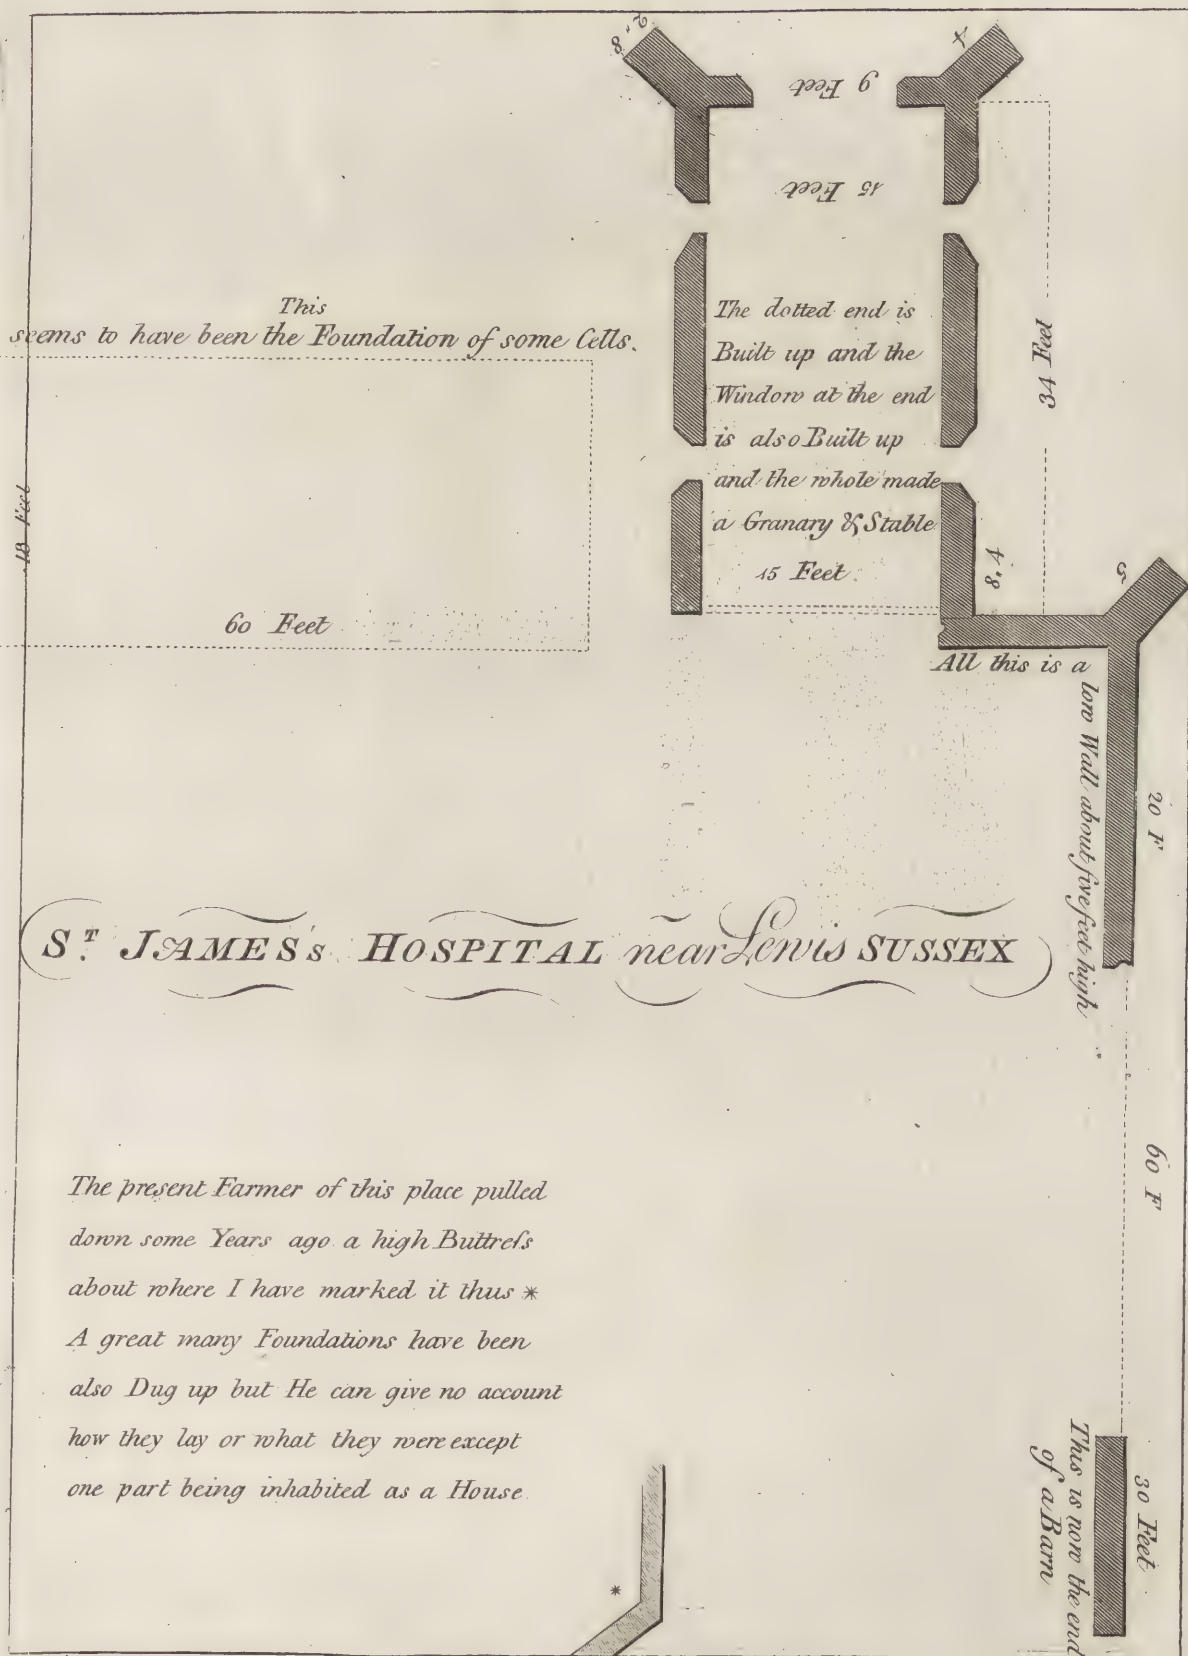 2.8
4
9 Feet
15 Feet
This
seems to have been the Foundation of some Cells.
18 Feet
60 Feet
The dotted end is
Built up and the
Window at the end
is also Built up
and the whole made
a Granary & Stable
15 Feet.
34 Feet
8.4
5
All this is a
low Wall about five feet high
20 F
ST. JAMES's HOSPITAL near Lewis SUSSEX
60 F
The present Farmer of this place pulled
down some Years ago a high Buttreſs
about where I have marked it thus *
A great many Foundations have been
also Dug up but He can give no account
how they lay or what they were except
one part being inhabited as a House.
*
This is now the end
of a Barn
30 Feet